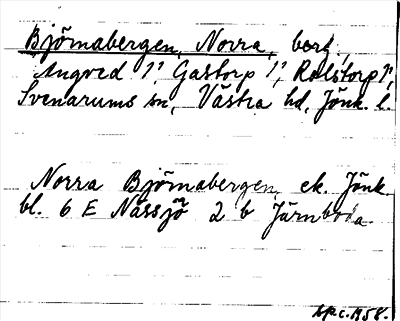 Björnabergen, Norra, berg,
Angved 1¹, Gastorp 1¹, Rolstorp 1¹,
Svenarums sn, Västra hd, Jönk. l.
Norra Björnabergen, ek. Jönk.
bl. 6 E Nässjö 2 b Järnboda.
1958.